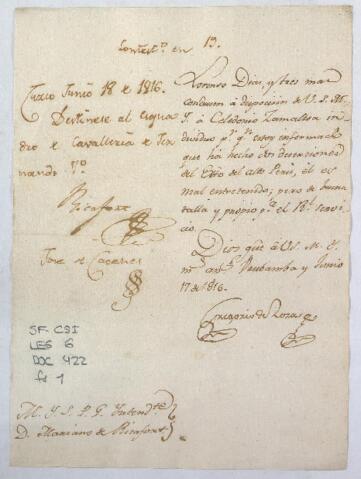 Contest.º en 19.
Cuzco Junio 18 de 1816.
Destinese al esqua
dro de Cavalleria de Fer
nando 7º
Ricafort
Jose de Caceres
Lorenzo Dias, y tres mas
conducen á disposicion de V.S. M.
Y. á Celedonio Zamallsa in
dividuo p.r q.e estoy informado
que ha hecho dos deserciones
del Exto del alto Perú, él es
mal entretenido; pero de buena
talla y propio p.a el Rl. servi
cio.
Dios gue á US. M. Y.
m.s an.s Urubamba y Junio
17 de 1816.
Gregorio de Rozas
SF. CSI
LEG 6
DOC 422
fs 1
M. Y. S. P. G. Intend.te
D. Mariano de Ricafort